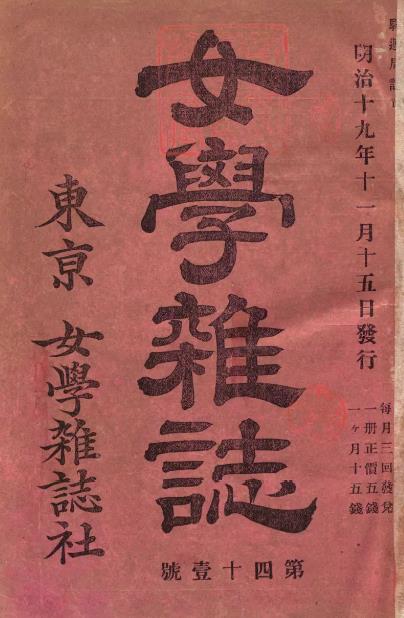 明治十九年十一月十五日發行
每月三回發兌
一册正價五錢
一ヶ月十五錢
女學雑誌
第四十壹號
東京 女學雑誌社